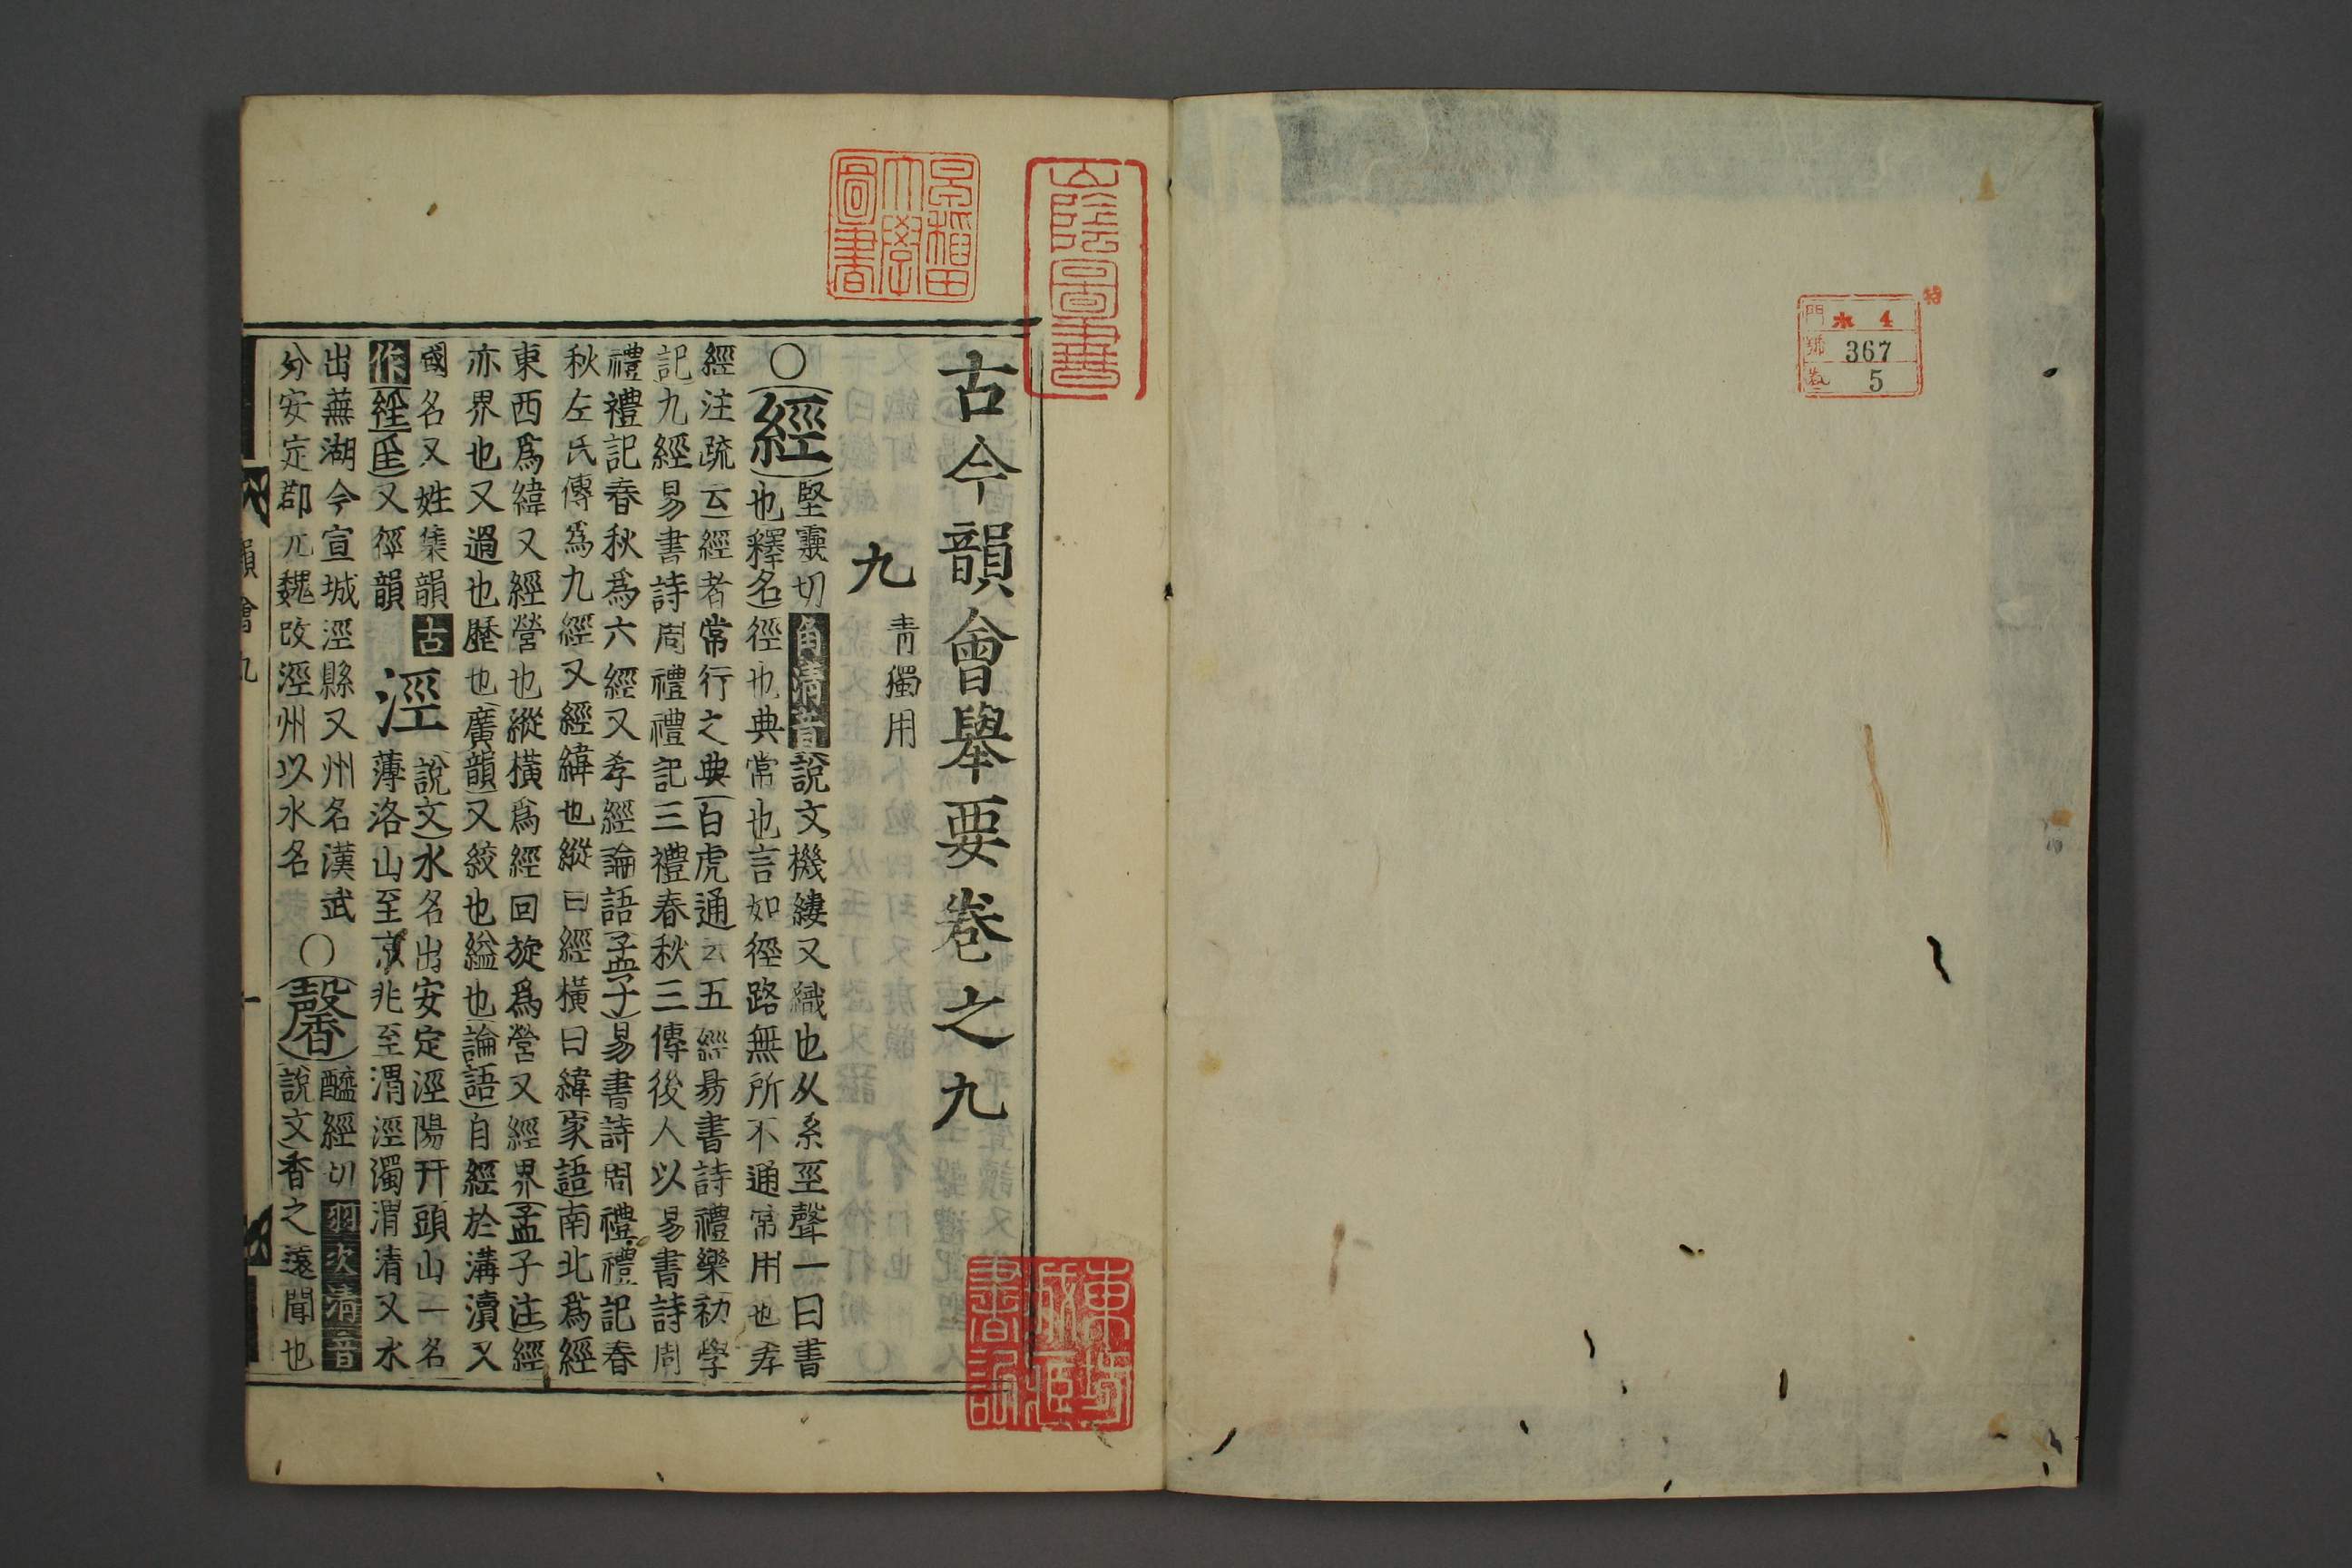 特
門 ホ 4
號 367
卷 5
古今韻會舉要卷之九
九 青獨用
〇經 堅靈切角清音說文機縷又織也从系巠聲一曰書
也釋名徑也典常也言如徑路無所不通常用也孝
經注疏云經者常行之典白虎通云五經易書詩禮樂初學
記九經易書詩周禮禮記三禮春秋三傳後人以易書詩周
禮禮記春秋為六經又孝經論語孟子易書詩周禮禮記春
秋左氏傳為九經又經緯也縱曰經橫曰緯家語南北為經
東西為緯又經營也縱橫為經回旋為營又經界孟子注經
亦界也又過也歷也廣韻又絞也縊也論語自經於溝瀆又
國名又姓集韻古
作𦀇𡿭又徑韻
涇 說文水名出安定涇陽幵頭山一名
薄洛山至京兆至渭涇濁渭清又水
出蕪湖今宣城涇縣又州名漢武
分安定郡元魏改涇州以水名
〇馨 醯經切羽次清音
說文香之遠聞也
韻會九
早稻田大學圖書